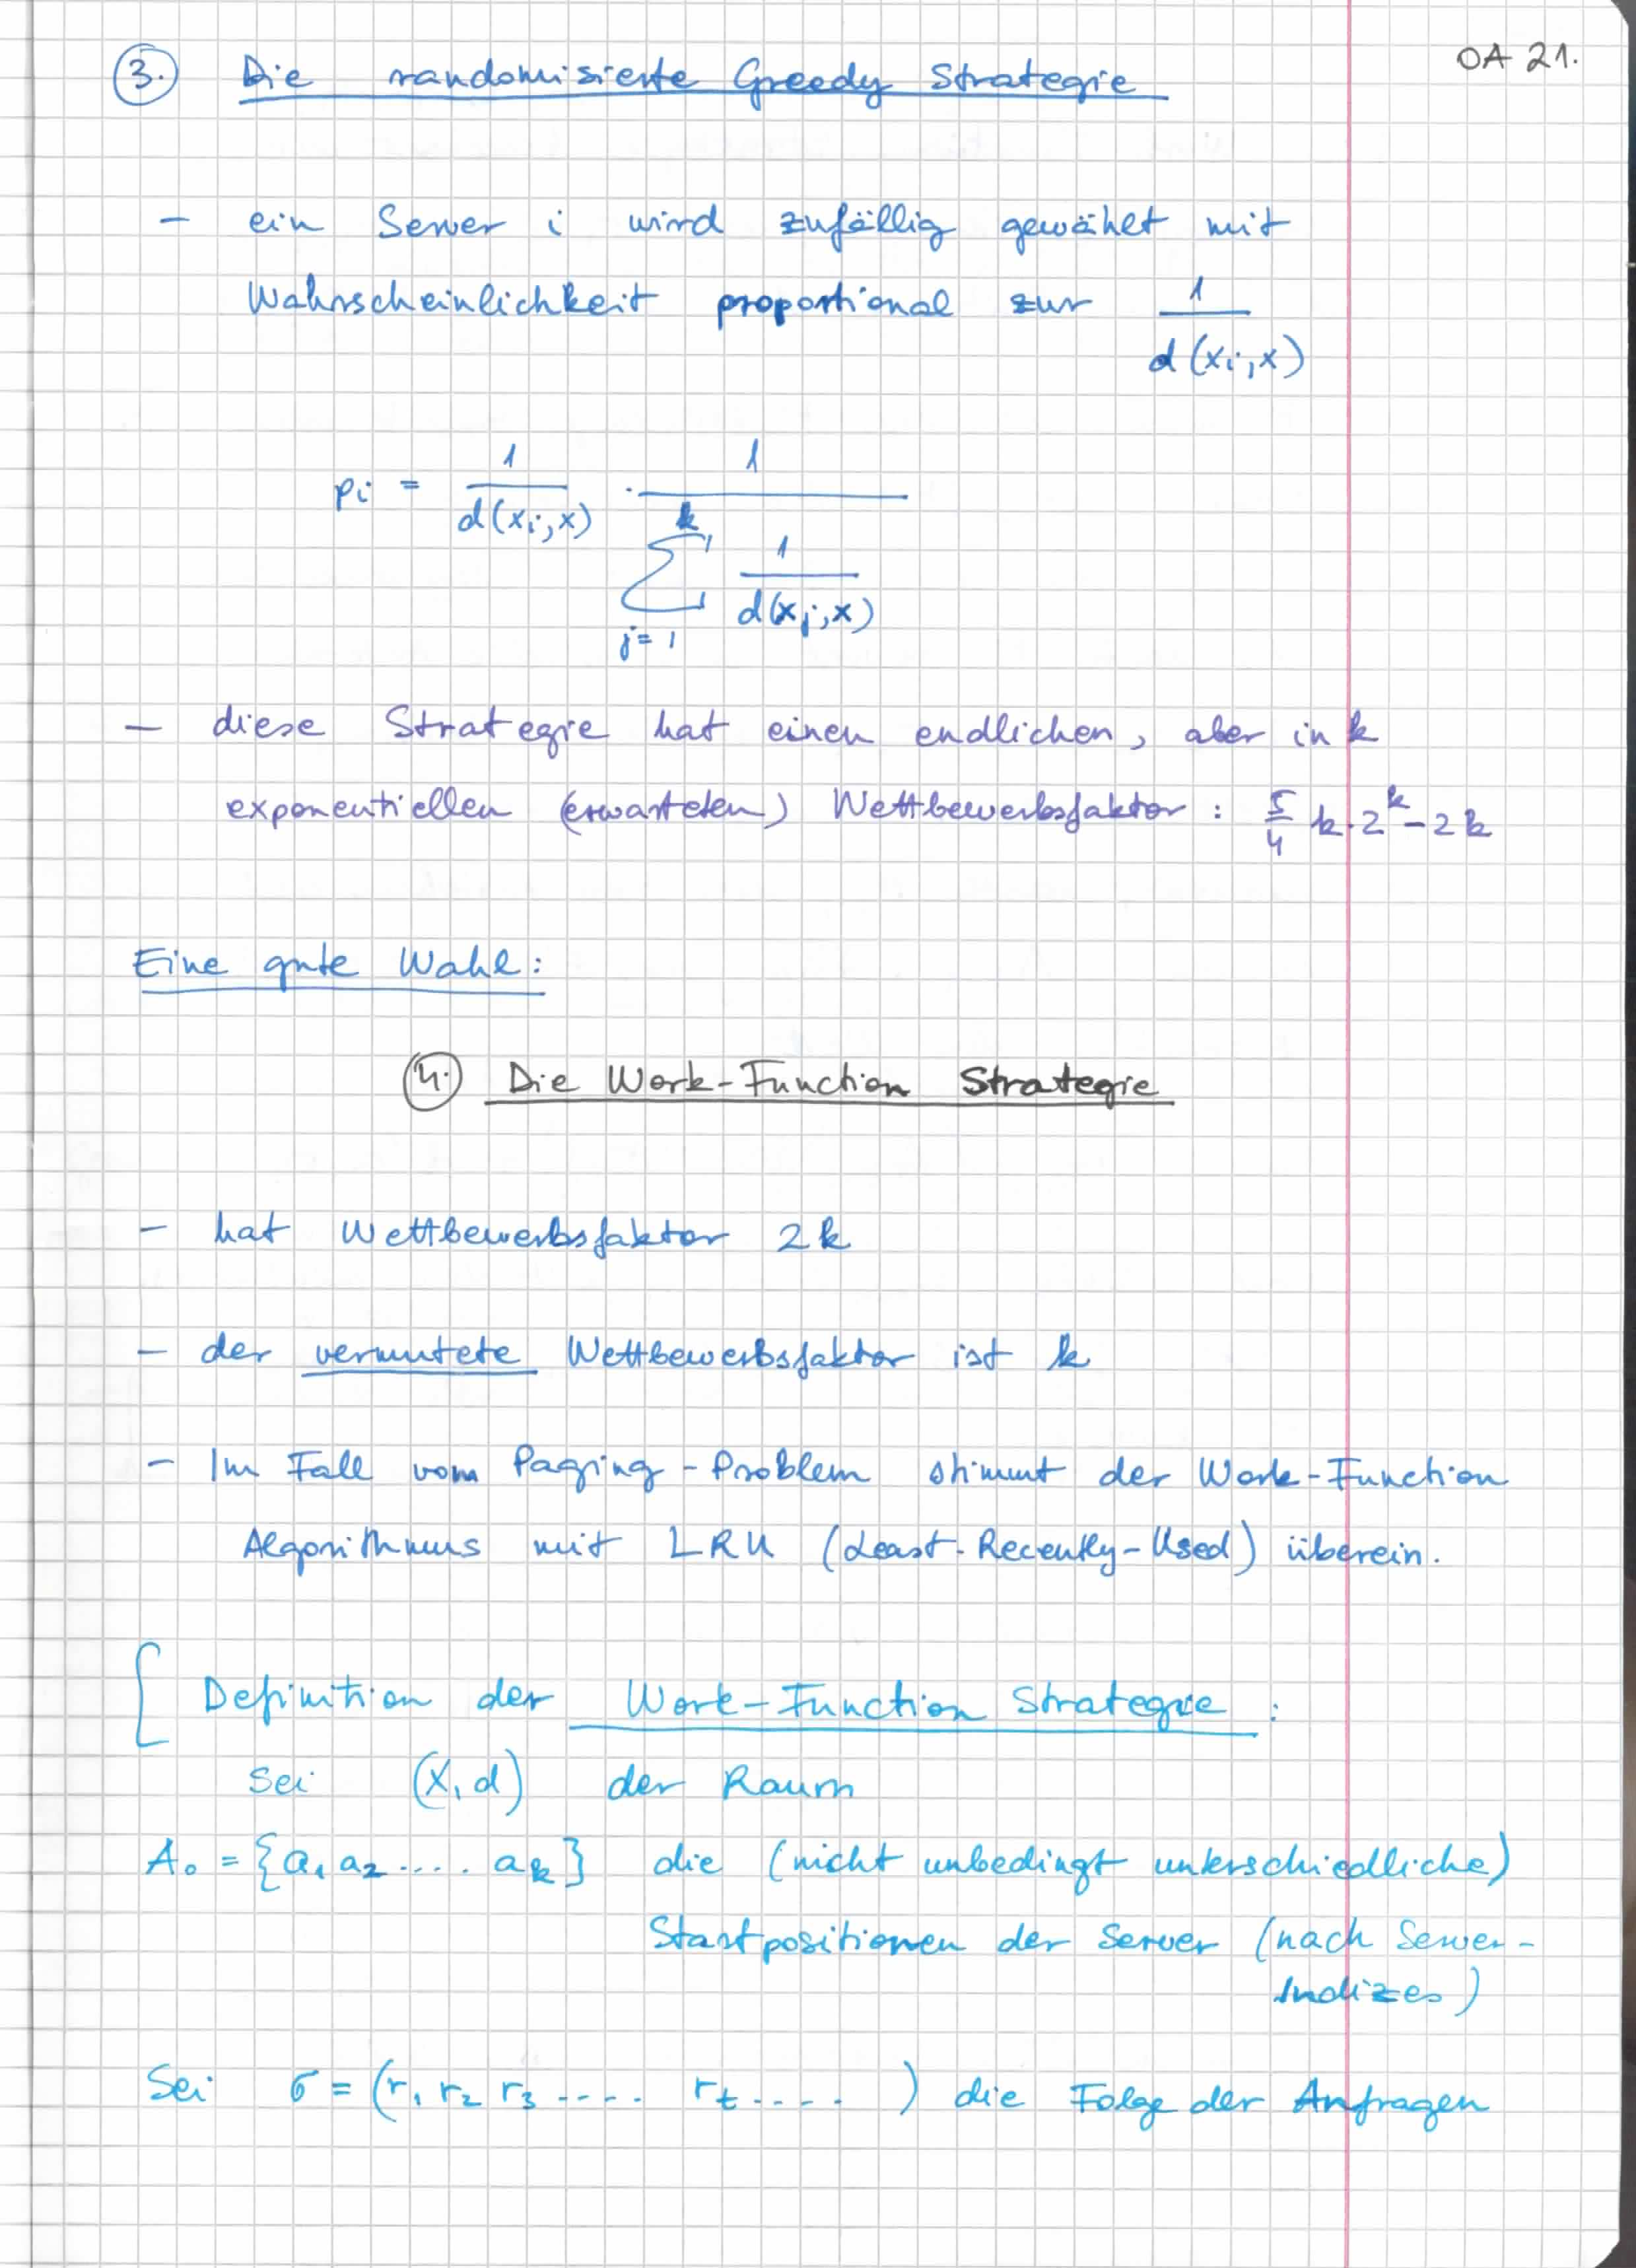 OA 21.
3. Die randomisierte Greedy Strategie
- ein Server i wird zufällig gewählt mit
Wahrscheinlichkeit proportional zur 1/d(xi,x)
pi = 1/d(xi,x) · 1/(∑_{j=1}^{k} 1/d(xj,x))
- diese Strategie hat einen endlichen, aber in k
exponentiellen (erwarteten) Wettbewerbsfaktor: 5/4 k·2^k - 2k
Eine gute Wahl:
4. Die Work-Function Strategie
- hat Wettbewerbsfaktor 2k
- der vermutete Wettbewerbsfaktor ist k
- Im Fall vom Paging-Problem stimmt der Work-Function
Algorithmus mit LRU (Least-Recently-Used) überein.
[ Definition der Work-Function Strategie:
Sei (X, d) der Raum
A₀ = {a₁ a₂ .... a_k} die (nicht unbedingt unterschiedliche)
Startpositionen der Server (nach Server-
Indizes)
Sei σ = (r₁ r₂ r₃ .... r_t .... ) die Folge der Anfragen